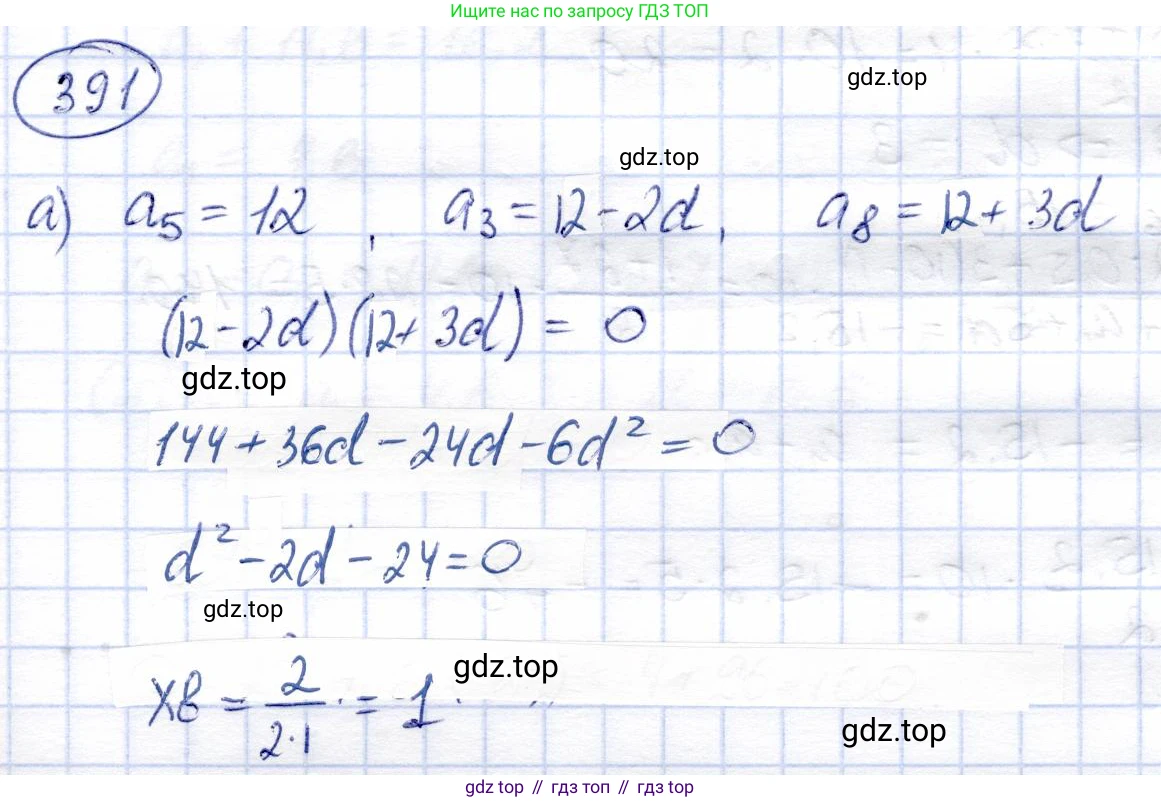 Ищите нас по запросу ГДЗ ТОП
391
gdz.top
gdz.top
а) a₅ = 12, a₃ = 12 - 2d, a₈ = 12 + 3d
(12 - 2d)(12 + 3d) = 0
gdz.top
144 + 36d - 24d - 6d² = 0
d² - 2d - 24 = 0
gdz.top
xв = 2/(2·1) = 1
gdz.top
gdz.top
gdz top // гдз топ // gdz.top